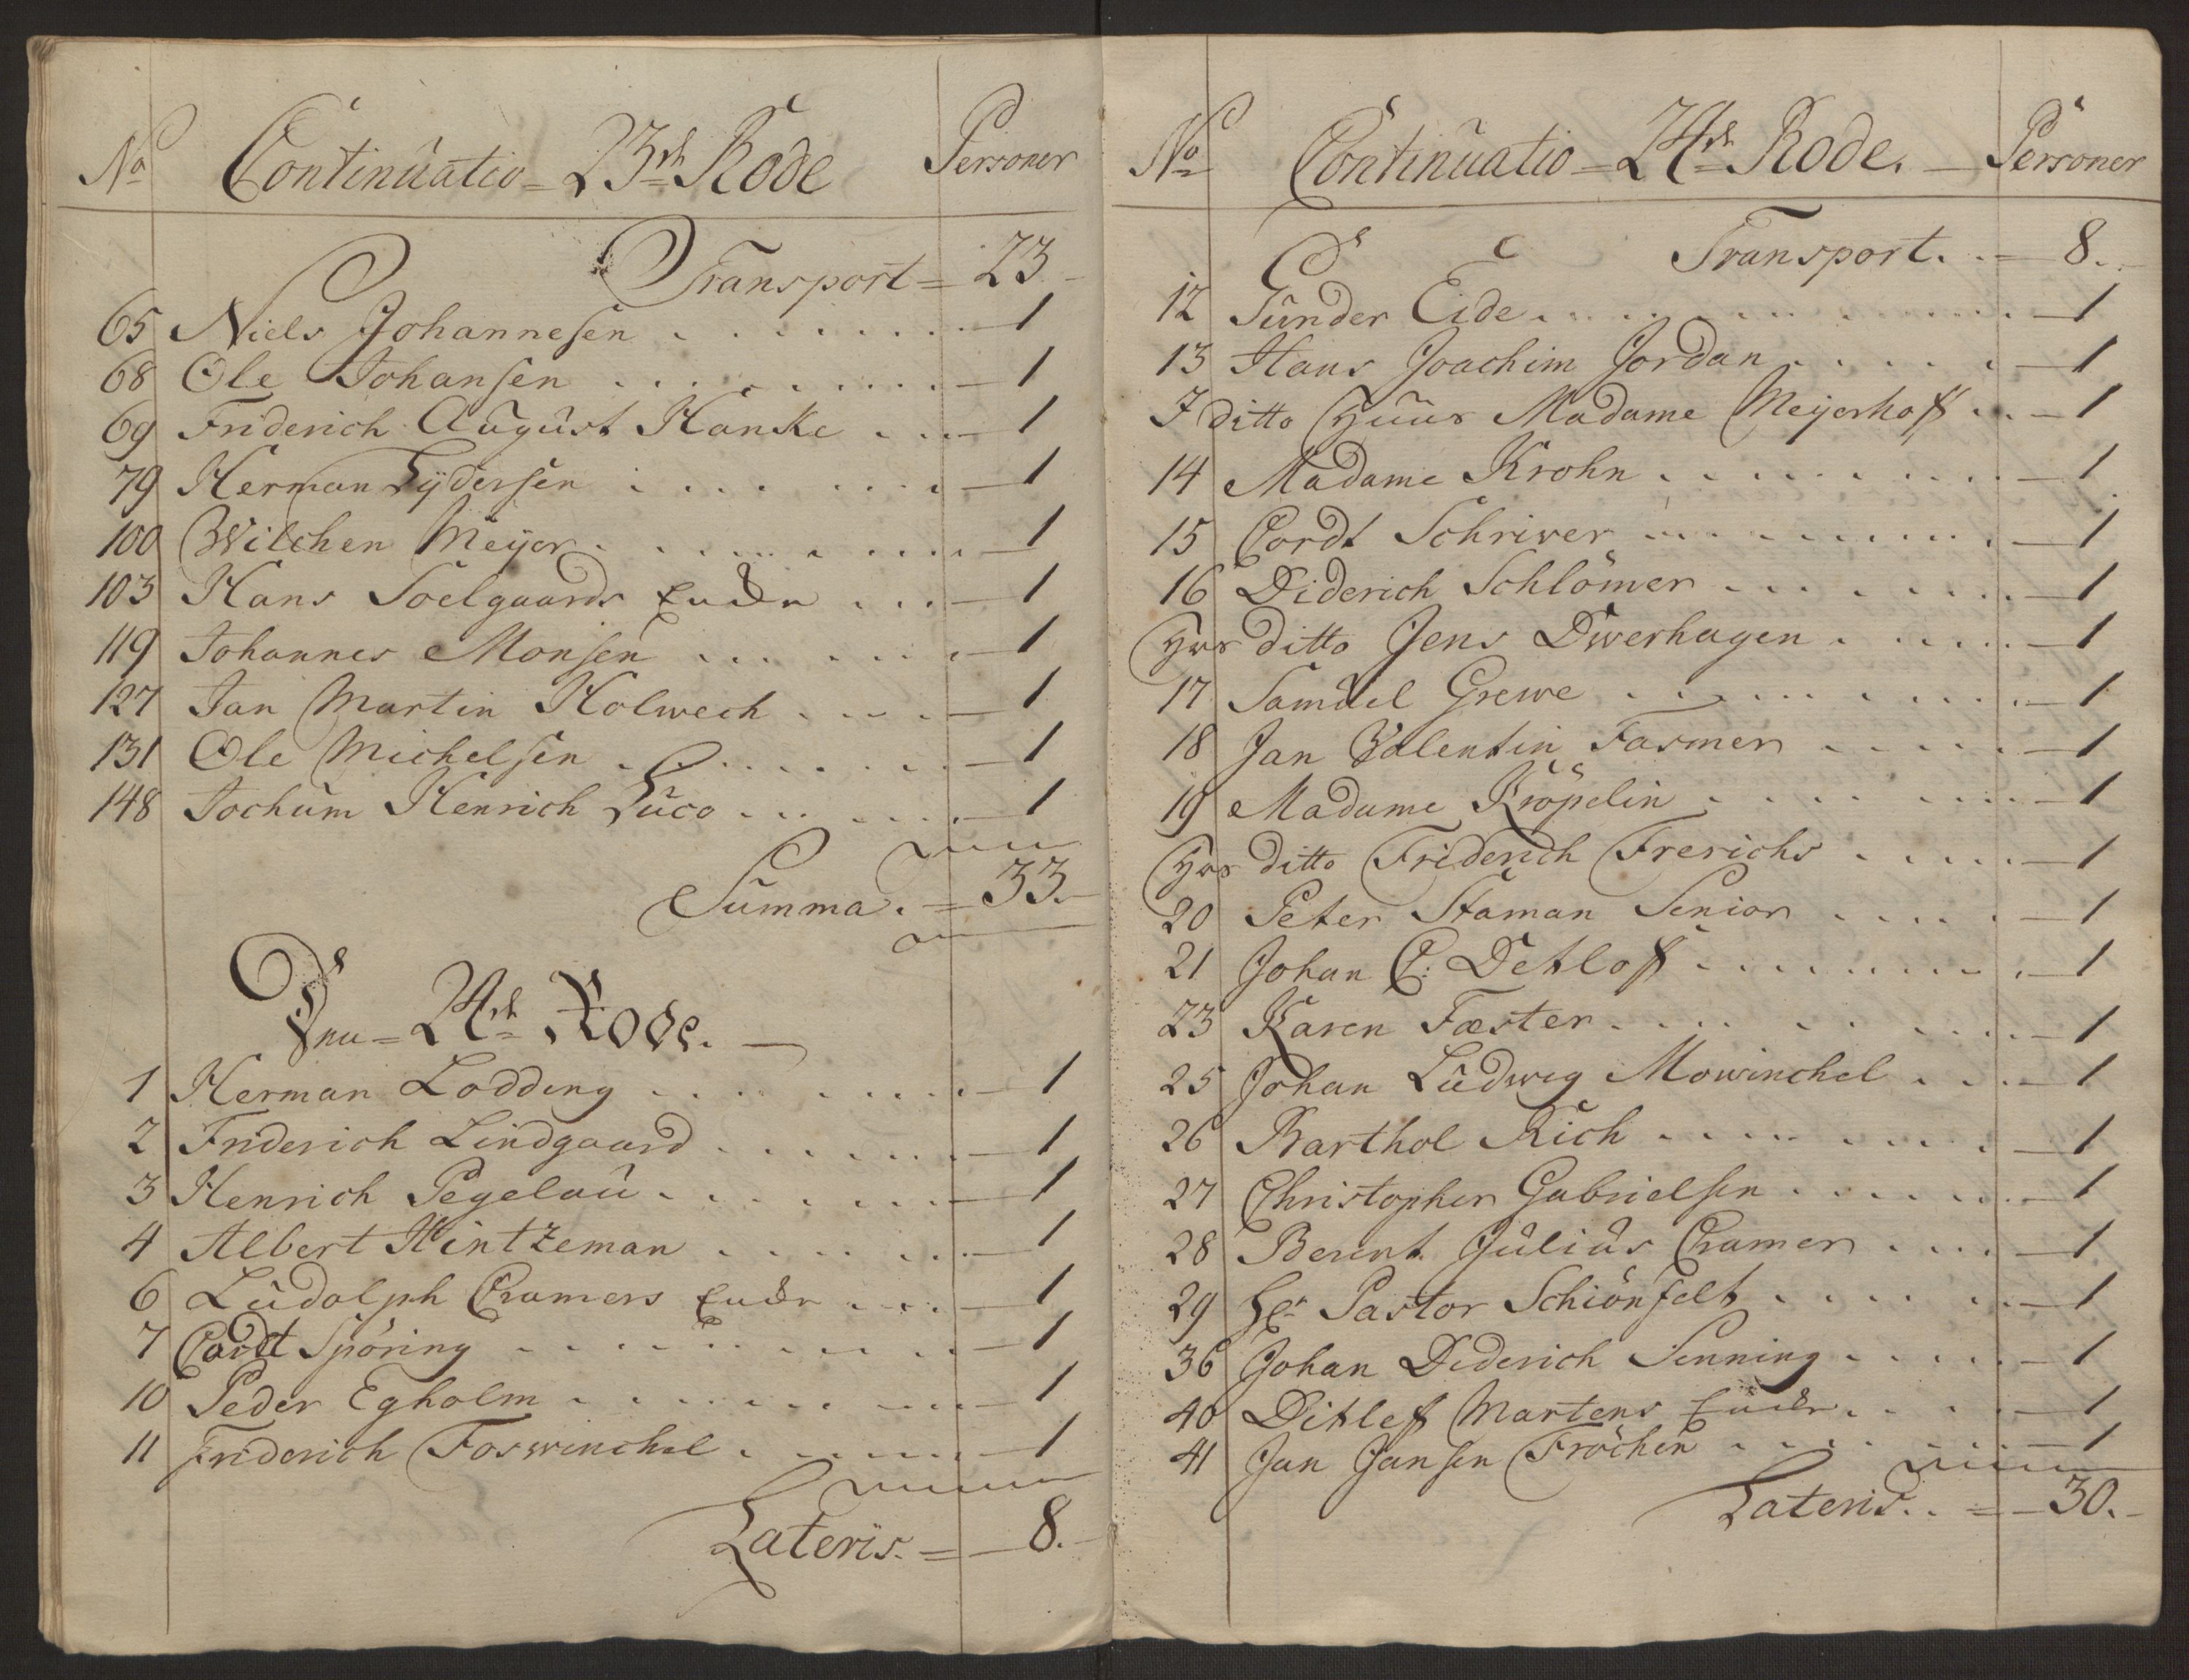 No Continuatio = 23de Rode Personer
Transport = 23.-
65 Niels Johannesen . . . . . . . . 1
68 Ole Johansen . . . . . . . . . 1
69 Friderich August Hanke . . . 1
79 Herman Lÿdersen . . . . . . . 1
100 Wilchen Meÿer . . . . . . . . 1
103 Hans Soelgaards Encke . . . 1
119 Johannes Monsen . . . . . . 1
127 Jan Martin Holwech . . . . 1
131 Ole Michelsen . . . . . . . . 1
148 Jochum Henrich Luco . . . . . 1
Summa. = 33.-
Den = 24de Rode.
1 Herman Lodding . . . . . . . . 1
2 Friderich Lindgaard . . . . . . 1
3 Henrich Pegelau . . . . . . . 1
4 Albert Hintzeman . . . . . . 1
6 Ludolph Cramers Encke . . . . 1
7 Cordt Spöring . . . . . . . . . 1
10 Peder Egholm . . . . . . . . 1
11 Friderich Foswinchel . . . . . 1
Lateris. = 8.-
No Continuatio = 24de Rode. Personer
Transport. . = 8. -
12 Sunder Eide . . . . . . . . . . 1
13 Hans Joachim Jordan . . . . . 1
J ditto Huus Madame Meÿerhoff . . 1
14 Madame Krohn . . . . . . . . 1
15 Cordt Schriver . . . . . . . . 1
16 Diderich Schlömer . . . . . . . 1
Hus ditto Jens Dwerhagen . . . . . 1
17 Samuel Grewe . . . . . . . . . 1
18 Jan Valentin Fasmer . . . . . 1
19 Madame Kröpelin . . . . . . . 1
Hus ditto Friderich Frerichs . . . . . 1
20 Peter Staman Senior . . . . . 1
21 Johan C: Detloff . . . . . . . . 1
23 Karen Fæster . . . . . . . . . 1
25 Johan Ludwig Mowinchel . . . 1
26 Barthol Rich . . . . . . . . . 1
27 Christopher Gabrielsen . . . . . 1
28 Berent Julius Cramer . . . . 1
29 Hr Pastor Schiönfelt . . . . . . 1
36 Johan Diderich Senning . . . . . 1
40 Ditlef Martens Encke . . . . . 1
41 Jan Jansen Fröchen . . . . . . 1
Lateris. . = 30. -